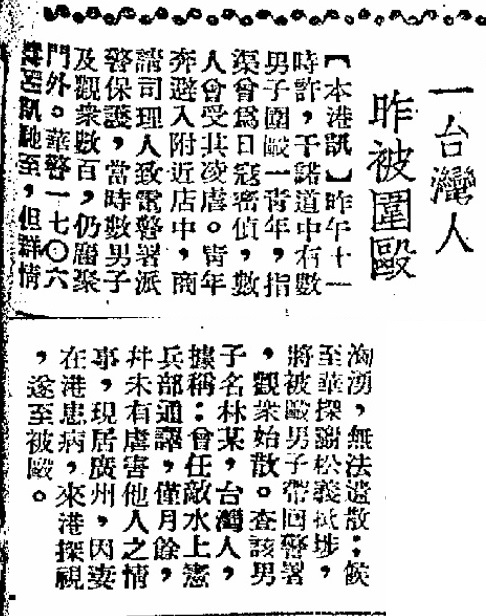 一台灣人
昨被圍毆
【本港訊】昨午十一
時許，干諾道中有數
男子圍毆一青年，指
渠曾爲日寇密偵，數
人曾受其凌虐。靑年
奔避入附近店中，商
請司理人致電警署派
警保護，當時數男子
及觀衆數百，仍屬聚
門外。華警一七〇六
訊馳至，但群情
洶湧，無法遣散；候
至華探謝松義抵埗，
將被毆男子帶回警署
，觀衆始散。查該男
子名林某，台灣人，
據稱：曾任敵水上憲
兵部通譯，僅月餘，
幷未有虐害他人之情
事，現居廣州，因妻
在港患病，來港探視
，遂至被毆。